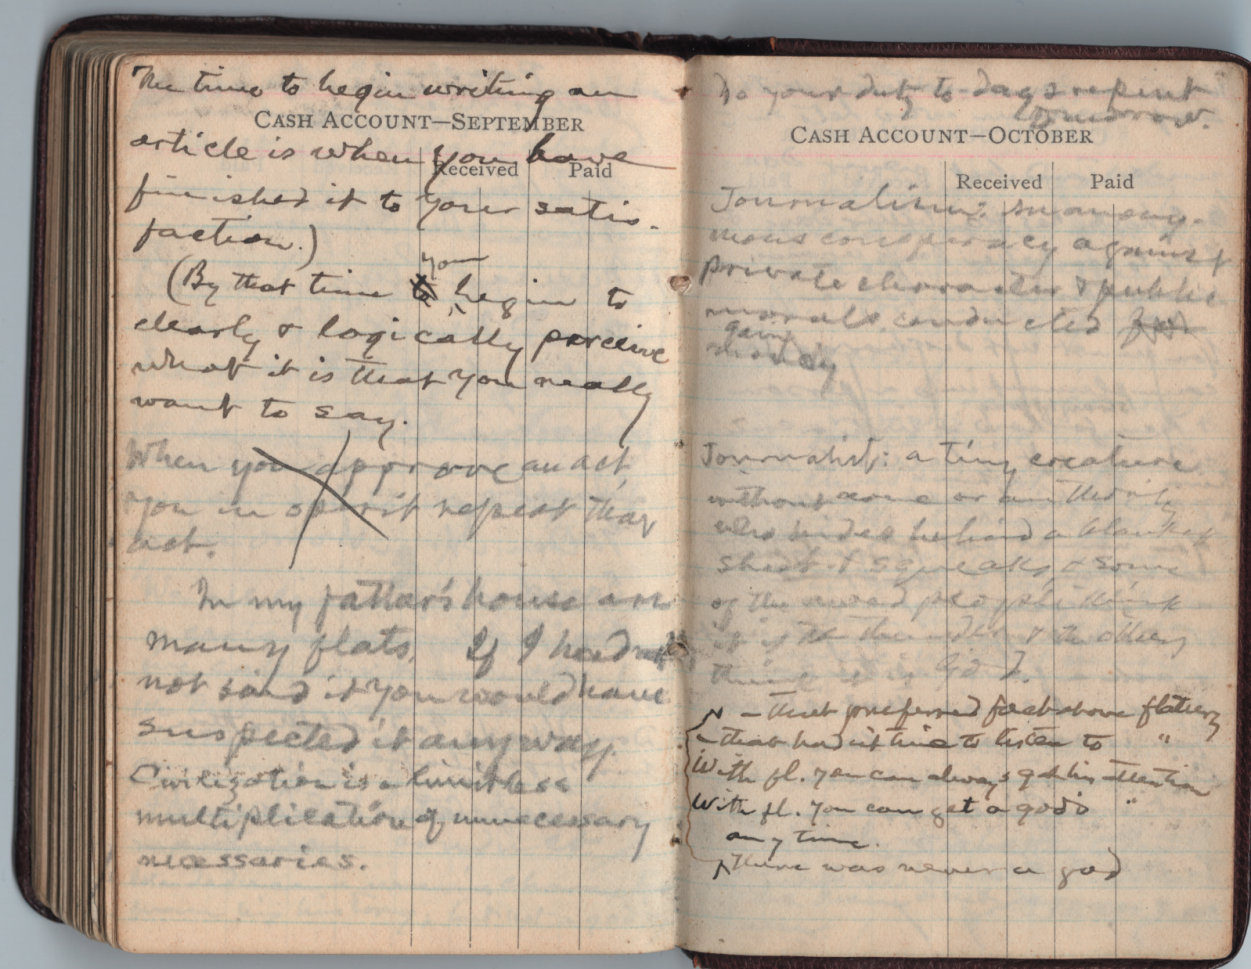 The time to begin writing an
CASH ACCOUNT—SEPTEMBER
article is when you have
Received Paid
finished it to your satis-
faction.)
(By that time you begin to
clearly & logically perceive
what it is that you really
want to say.
When you approve an act
you in spirit repeat that
act.
In my father's house are
many flats. If I had not
not said it you would have
suspected it anyway.
Civilization is a limitless
multiplication of unnecessary
necessaries.
Do your duty to-day & repent
tomorrow.
CASH ACCOUNT—OCTOBER
Received Paid
Journalism: An anony-
mous conspiracy against
private character & public
morals, conducted for
gain
money
Journalist: a tiny creature
without name or authority
who hides behind a blanket
sheet & squeaks, & some
of the people think
it is the thunder & the others
think it is God.
— that preferred fact above flattery
— that hadn't time to listen to "
With fl. you can always get his attention
With fl. you can get a god's "
any time.
there was never a god